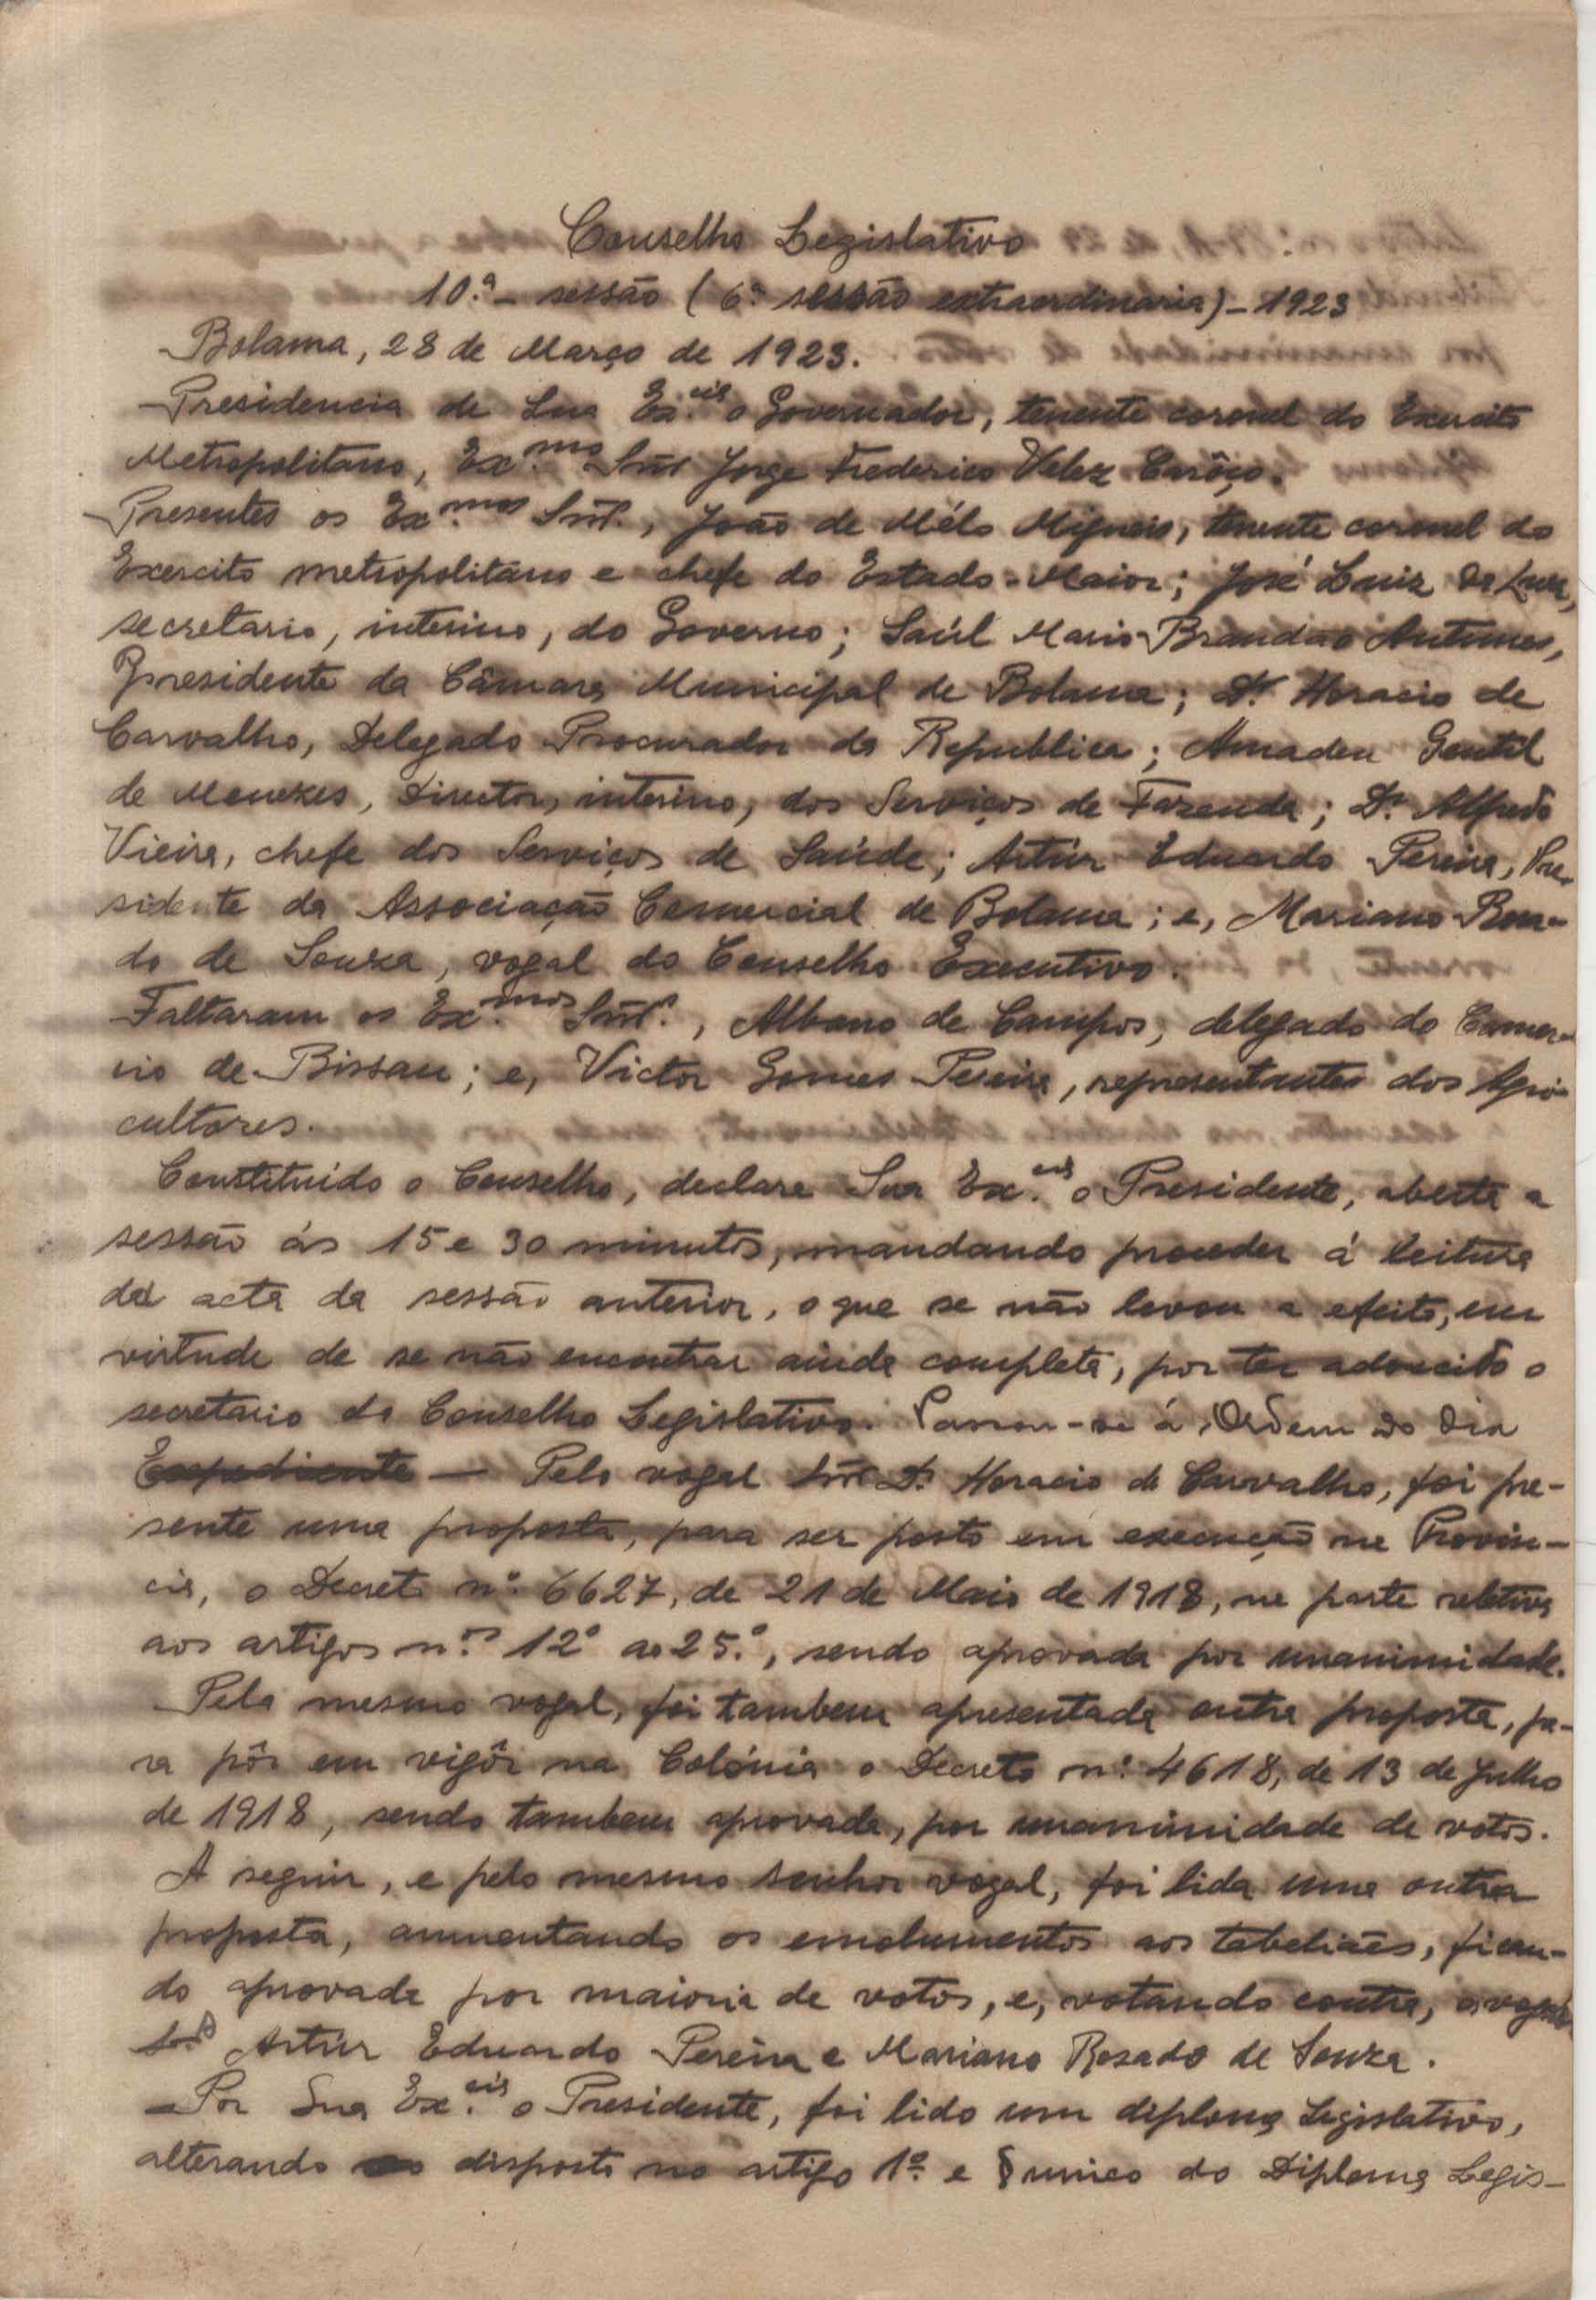 Conselho Legislativo
10.ª - sessão (6.ª sessão extraordinaria) - 1923
Bolama, 28 de Março de 1923.
Presidencia de Sua Ex.cia o Governador, tenente coronel do Exercito
Metropolitano, Ex.mo Snr Jorge Frederico Velez Carôço.
Presentes os Ex.mos Snrs., João de Mélo Migueis, tenente coronel do
Exercito metropolitano e chefe do Estado-Maior; José Luiz da
secretario, interino, do Governo; Saúl Mario Brandão Antunes,
Presidente da Câmara Municipal de Bolama; Dr. Horacio de
Carvalho, Delegado Procurador da Republica; Amadeu Gentil
de Menezes, Director, interino, dos Serviços de Fazenda; Dr. Alfredo
Vieira, chefe dos Serviços de Saúde; Artúr Eduardo Pereira, Pre-
sidente da Associação Comercial de Bolama; e, Mariano Rosa-
do de Souza, vogal do Conselho Executivo.
Faltaram os Ex.mos Snrs., Albano de Campos, delegado do Comer-
cio de Bissau; e, Victor Gomes Pereira, representantes dos Agri-
cultores.
Constituido o Conselho, declara Sua Ex.cia o Presidente, aberta a
sessão ás 15 e 30 minutos, mandando proceder á leitura
da acta da sessão anterior, o que se não levou a efeito, em
virtude de se não encontrar ainda completa, por ter adoecido o
secretario do Conselho Legislativo. Passou-se á Ordem do Dia
Expediente — Pelo vogal Snr Dr. Horacio de Carvalho, foi pre-
sente uma proposta, para ser posto em execução na Provin-
cia, o Decreto n.º 6627, de 21 de Maio de 1918, na parte relativa
aos artigos n.os 12º ao 25.º, sendo aprovada por unanimidade.
Pelo mesmo vogal, foi tambem apresentada outra proposta, pa-
ra pôr em vigôr na Colónia o Decreto n.º 4618, de 13 de Julho
de 1918, sendo tambem aprovada, por unanimidade de votos.
A seguir, e pelo mesmo senhor vogal, foi lida uma outra
proposta, aumentando os emolumentos aos tabeliães, fican-
do aprovada por maioria de votos, e, votando contra, os vogaes
Artúr Eduardo Pereira e Mariano Rosado de Souza.
Por Sua Ex.cia o Presidente, foi lido um diploma Legislativo,
alterando o disposto no artigo 1.º e § unico do Diploma Legis-